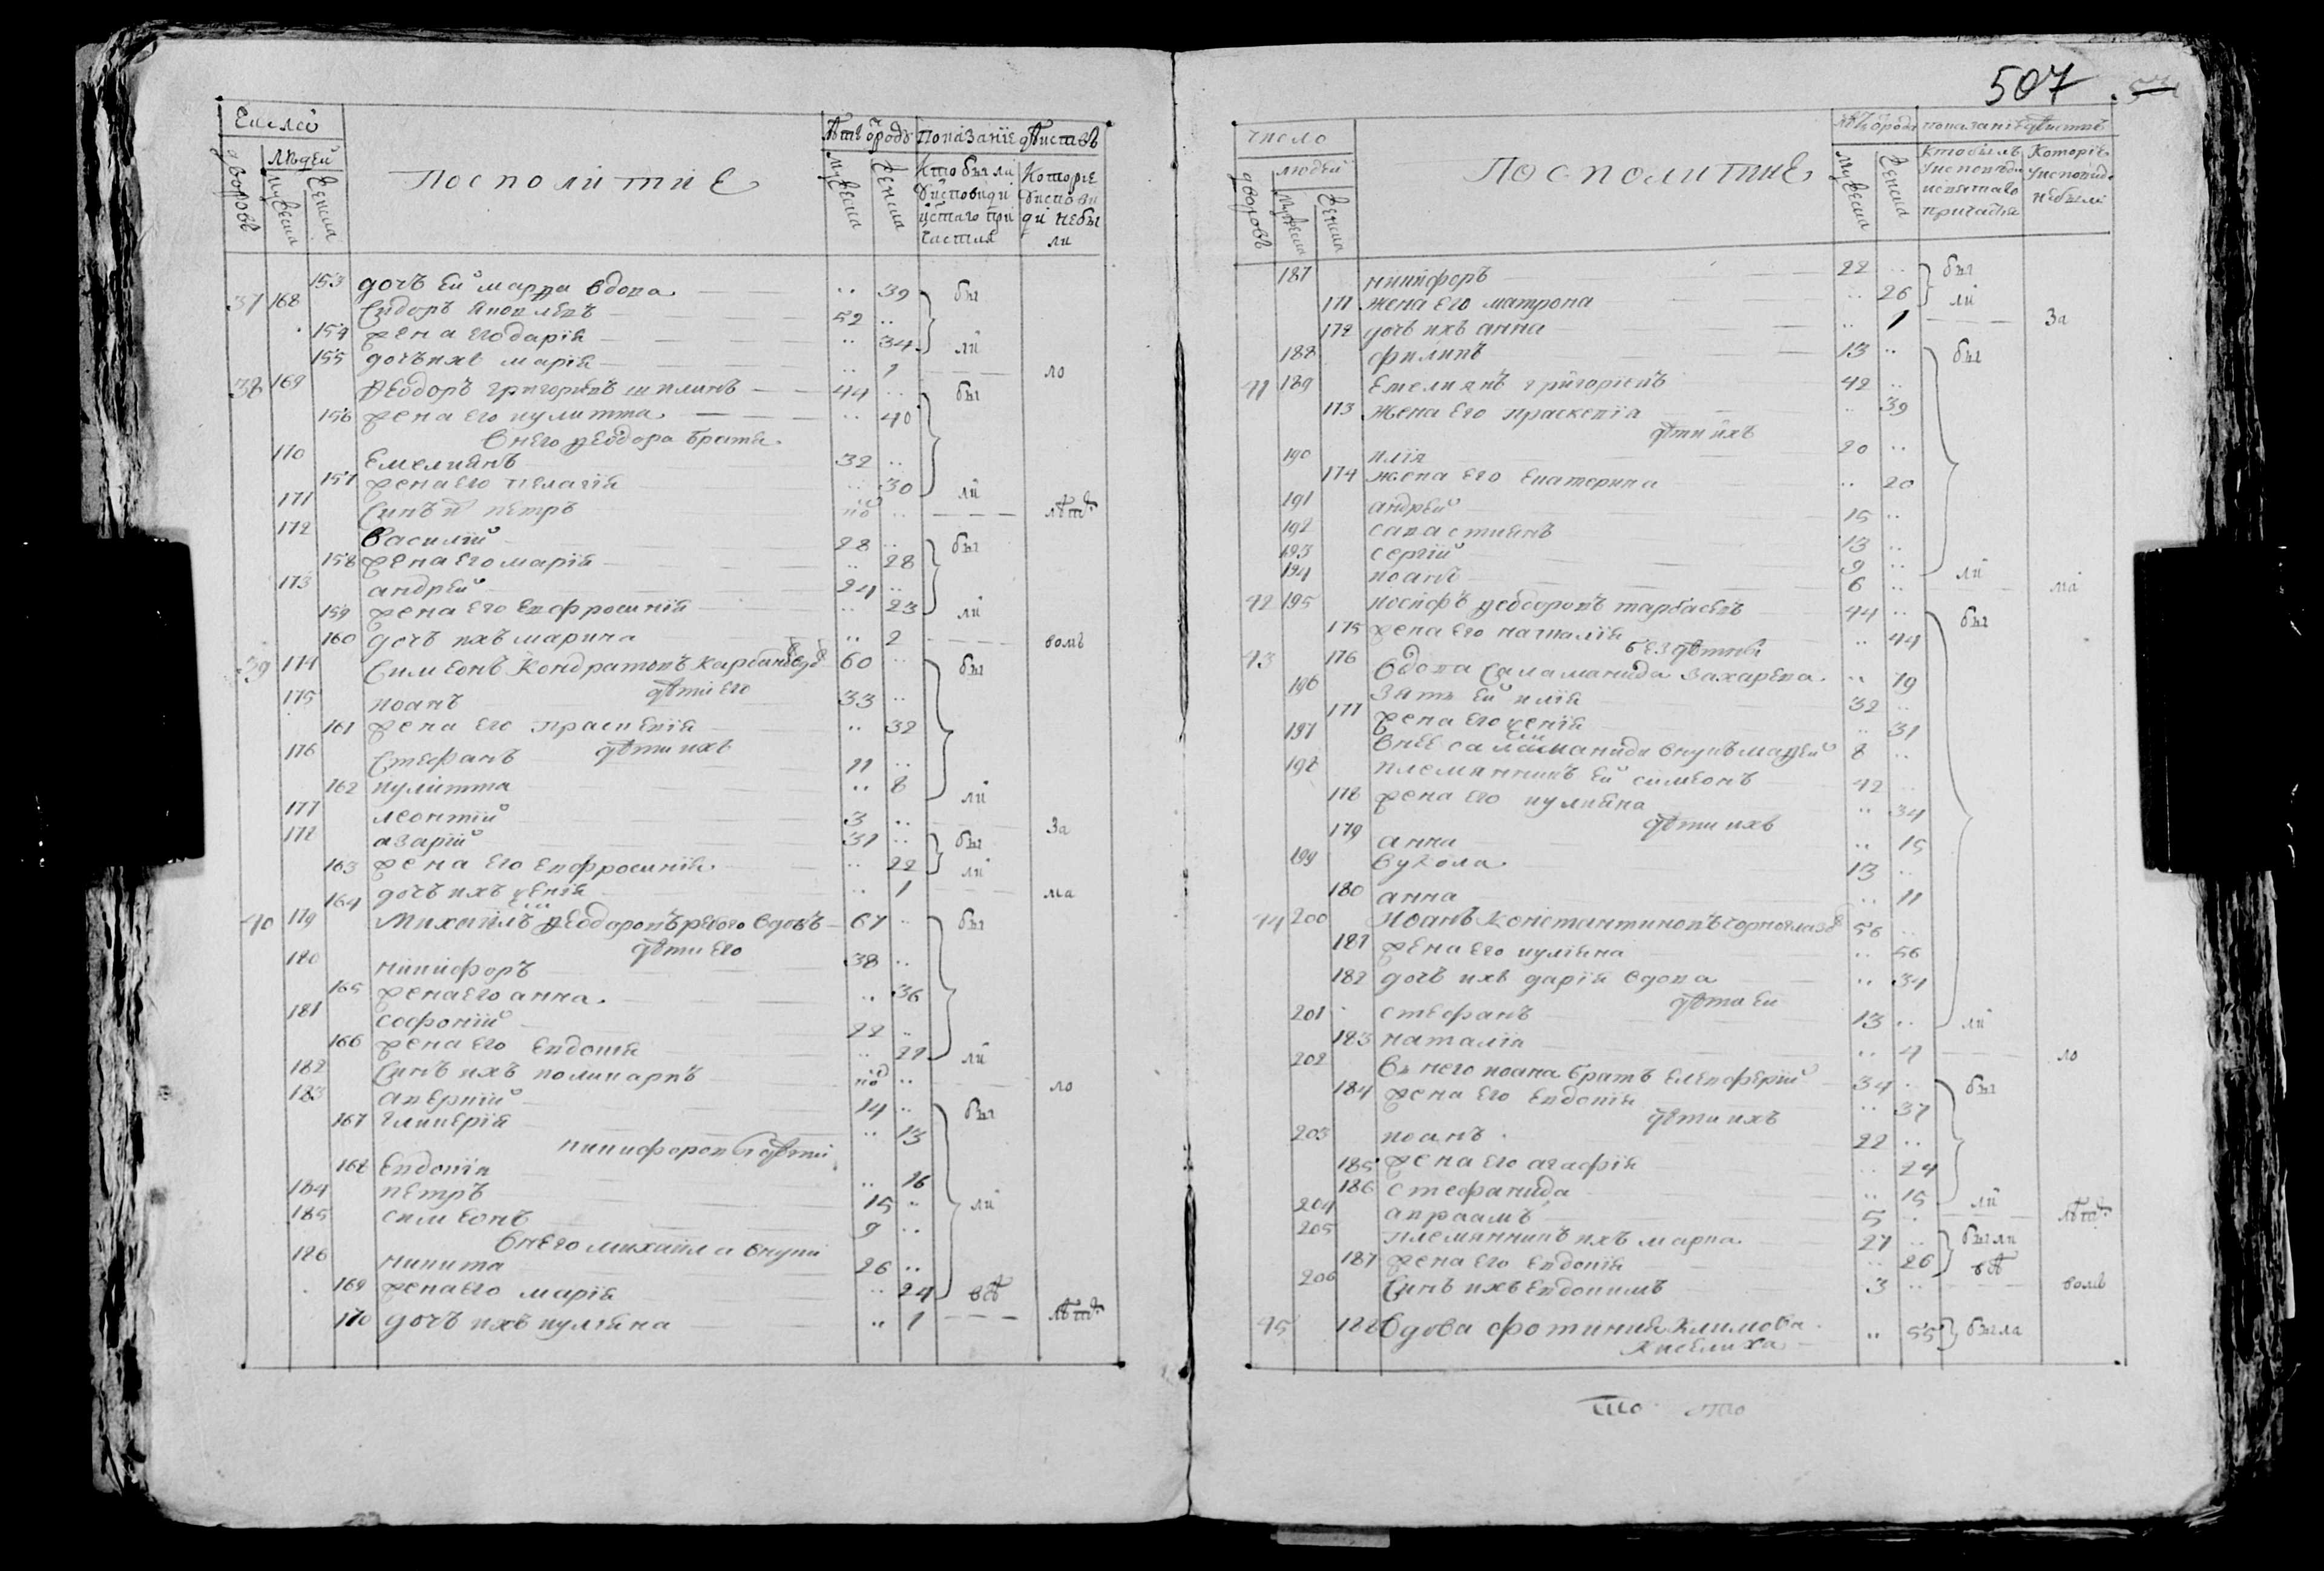 507
Число
Людей
дворовъ
мужеска
женска
Посполитие
Лѣтъ ѿ роду
мужеска
женска
Показаніе дѣиствъ
Кто были
у исповиди
и стаго при
частия
Которіе
у испови
ди небы
ли
153 дочъ ей марѳа вдова .. 39 бы
37 168 Сидоръ Яковлевъ 52 ..
154 жена его дарія .. 34 ли
155 дочъ ихъ марія .. 1 ло
38 169 Ѳеодоръ григориевъ 44 .. бы
156 жена его иулитта .. 40
В него ѳеодора братя
170 Емелиянъ 32 ..
157 жена его пелагія .. 30 ли
171 Синъ петръ .. лѣт
172 Василій 28 .. бы
158 жена его марія .. 28
173 андрей 24 ..
159 жена его евфросинія .. 23 ли
160 дочъ ихъ марина .. 2 вомъ
39 174 Симеонъ Кондратовъ 60 .. бы
дѣти его
175 иоанъ 33 ..
161 жена его прасковія .. 32
дѣти ихъ
176 Стефанъ 11 ..
162 иулитта .. 8 ли
177 леонтій 3 .. За
178 азарій 31 .. бы
163 жена его евфросинія .. 22 ли
164 дочъ ихъ ѯенія .. 1 ма
40 179 Михаилъ Ѳеодоровъ вдовъ 67 .. бы
дѣти его
180 никифоръ 38 ..
165 жена его анна .. 36
181 софоній 22 ..
166 жена его евдокия .. 22 ли
182 Синъ ихъ поликарпъ .. ло
183 аверкій 14 .. бы
167 гликерія .. 13
никифоровы дѣти
168 Евдокія .. 16
184 петръ 15 .. ли
185 симеонъ 9 ..
В него михаила внуки
186 никита 26 ..
169 жена его марія .. 24 вѣ
170 дочъ ихъ иулияна .. 1 лѣт
число
людей
дворовъ
мужеска
женска
Посполитие
лѣтъ ѿ роду
мужеска
женска
показаніе дѣиствъ
Кто былъ
у исповѣди
и святаго
причастія
Которіе
у исповид
небыли
187 никифоръ 22 .. бы
171 жена его матрона .. 26 ли
172 дочъ ихъ анна .. 1 За
188 филипъ 13 .. бы
41 189 Емелиянъ григоріевъ 42 ..
173 Жена его праскевія .. 39
дѣти ихъ
190 илія 20 ..
174 жена его екатерина .. 20
191 андрей 15 ..
192 савастиянъ 13 ..
193 сергій 9 .. ли
194 иоанъ 6 .. ма
42 195 иосифъ ѳеодоровъ 44 .. бы
175 жена его наталія .. 44
без дѣтний
43 176 Вдова Саламанида Захарева ..
196 Зять ей илія 32 ..
177 жена его ѯенія .. 31
197 В нее саламаниди внукъ маѳей 8 ..
198 племянникъ ей симеонъ 42 ..
178 жена его иулияна .. 34
дѣти ихъ
179 анна .. 15
199 Вукола 13 ..
180 анна .. 11
44 200 Иоанъ Константиновъ 56 ..
181 жена его иулияна .. 56
182 дочъ ихъ дарія вдова .. 34
дѣти ей
201 стефанъ 13 .. ли
183 наталія .. 4 ло
202 В него иоана братъ елевферій 34 .. бы
184 жена его евдокія .. 37
дѣти ихъ
203 иоанъ 22 ..
185 жена его агафія .. 24
186 Стефанида .. 15 ли
204 авраамъ 5 .. лѣт
205 племянникъ ихъ марка 27 .. были
187 жена его евдокія .. 26 вѣ
206 Синъ ихъ евдокимъ 3 .. вомъ
45 188 Вдова фотиния Климова
Киселиха .. 55 была